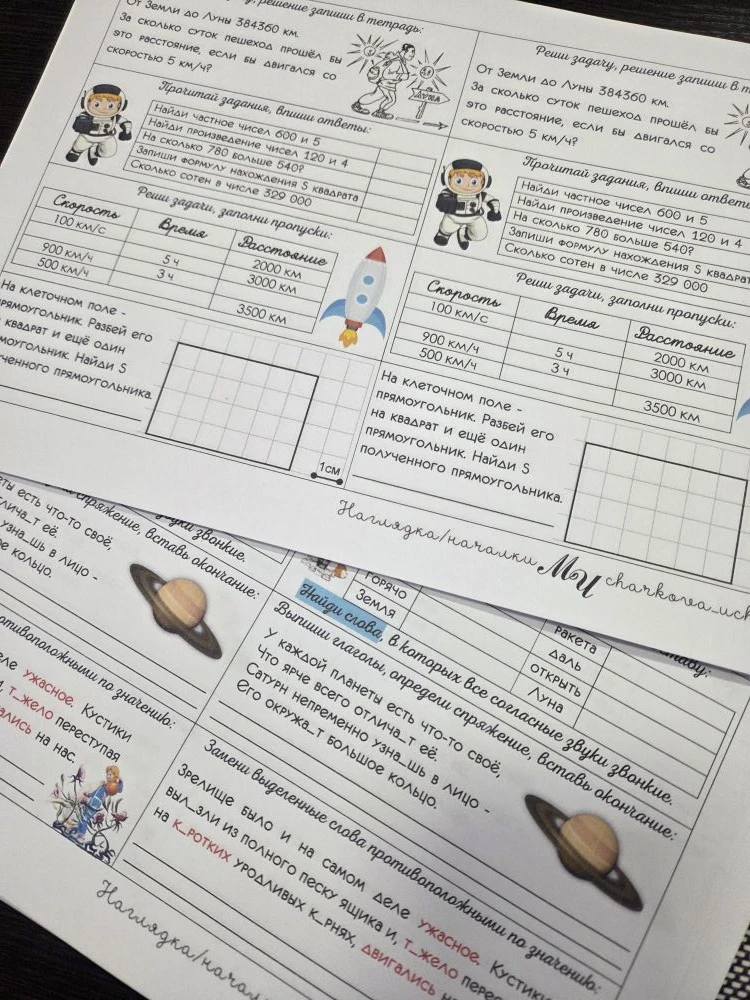 решение запиши в тетрадь:
От Земли до Луны 384360 км.
За сколько суток пешеход прошёл бы
это расстояние, если бы двигался со
скоростью 5 км/ч?
ЛУНА
Прочитай задания, впиши ответы:
Найди частное чисел 600 и 5
Найди произведение чисел 120 и 4
На сколько 780 больше 540?
Запиши формулу нахождения S квадрата
Сколько сотен в числе 329 000
Реши задачи, заполни пропуски:
Скорость Время Расстояние
100 км/с 2000 км
5 ч 3000 км
900 км/ч 3 ч
500 км/ч 3500 км
На клеточном поле -
прямоугольник. Разбей его
квадрат и ещё один
Найди S
прямоугольника.
1см
Реши задачу, решение запиши в
От Земли до Луны 384360 км.
За сколько суток пешеход прошёл бы
это расстояние, если бы двигался со
скоростью 5 км/ч?
Прочитай задания, впиши
Найди частное чисел 600 и 5
Найди произведение чисел 120 и 4
На сколько 780 больше 540?
Запиши формулу нахождения S
Сколько сотен в числе 329 000
Реши задачи, заполни пропуски:
Скорость Время Расстояние
100 км/с 2000 км
5 ч 3000 км
900 км/ч 3 ч
500 км/ч 3500 км
На клеточном поле -
прямоугольник. Разбей его
на квадрат и ещё один
прямоугольник. Найди S
полученного прямоугольника.
Наглядка/началки МЧ
звуки звонкие.
спряжение, вставь окончание:
есть что-то своё,
отлича_т её.
узна_шь в лицо -
кольцо.
противоположными по значению:
ужасное. Кустики
т_жело переступая
на нас
горячо
Земля
ракета
даль
открыть
Луна
Найди слова, в которых все согласные звуки звонкие.
Выпиши глаголы, определи спряжение, вставь окончание:
У каждой планеты есть что-то своё,
Что ярче всего отлича_т её.
Сатурн непременно узна_шь в лицо -
Его окружа_т большое кольцо.
Замени выделенные слова противоположными по значению:
Зрелище было и на самом деле ужасное. Кустики
выл_зли из полного песку ящика и, т_жело
на к_ротких уродливых к_рнях, двигались